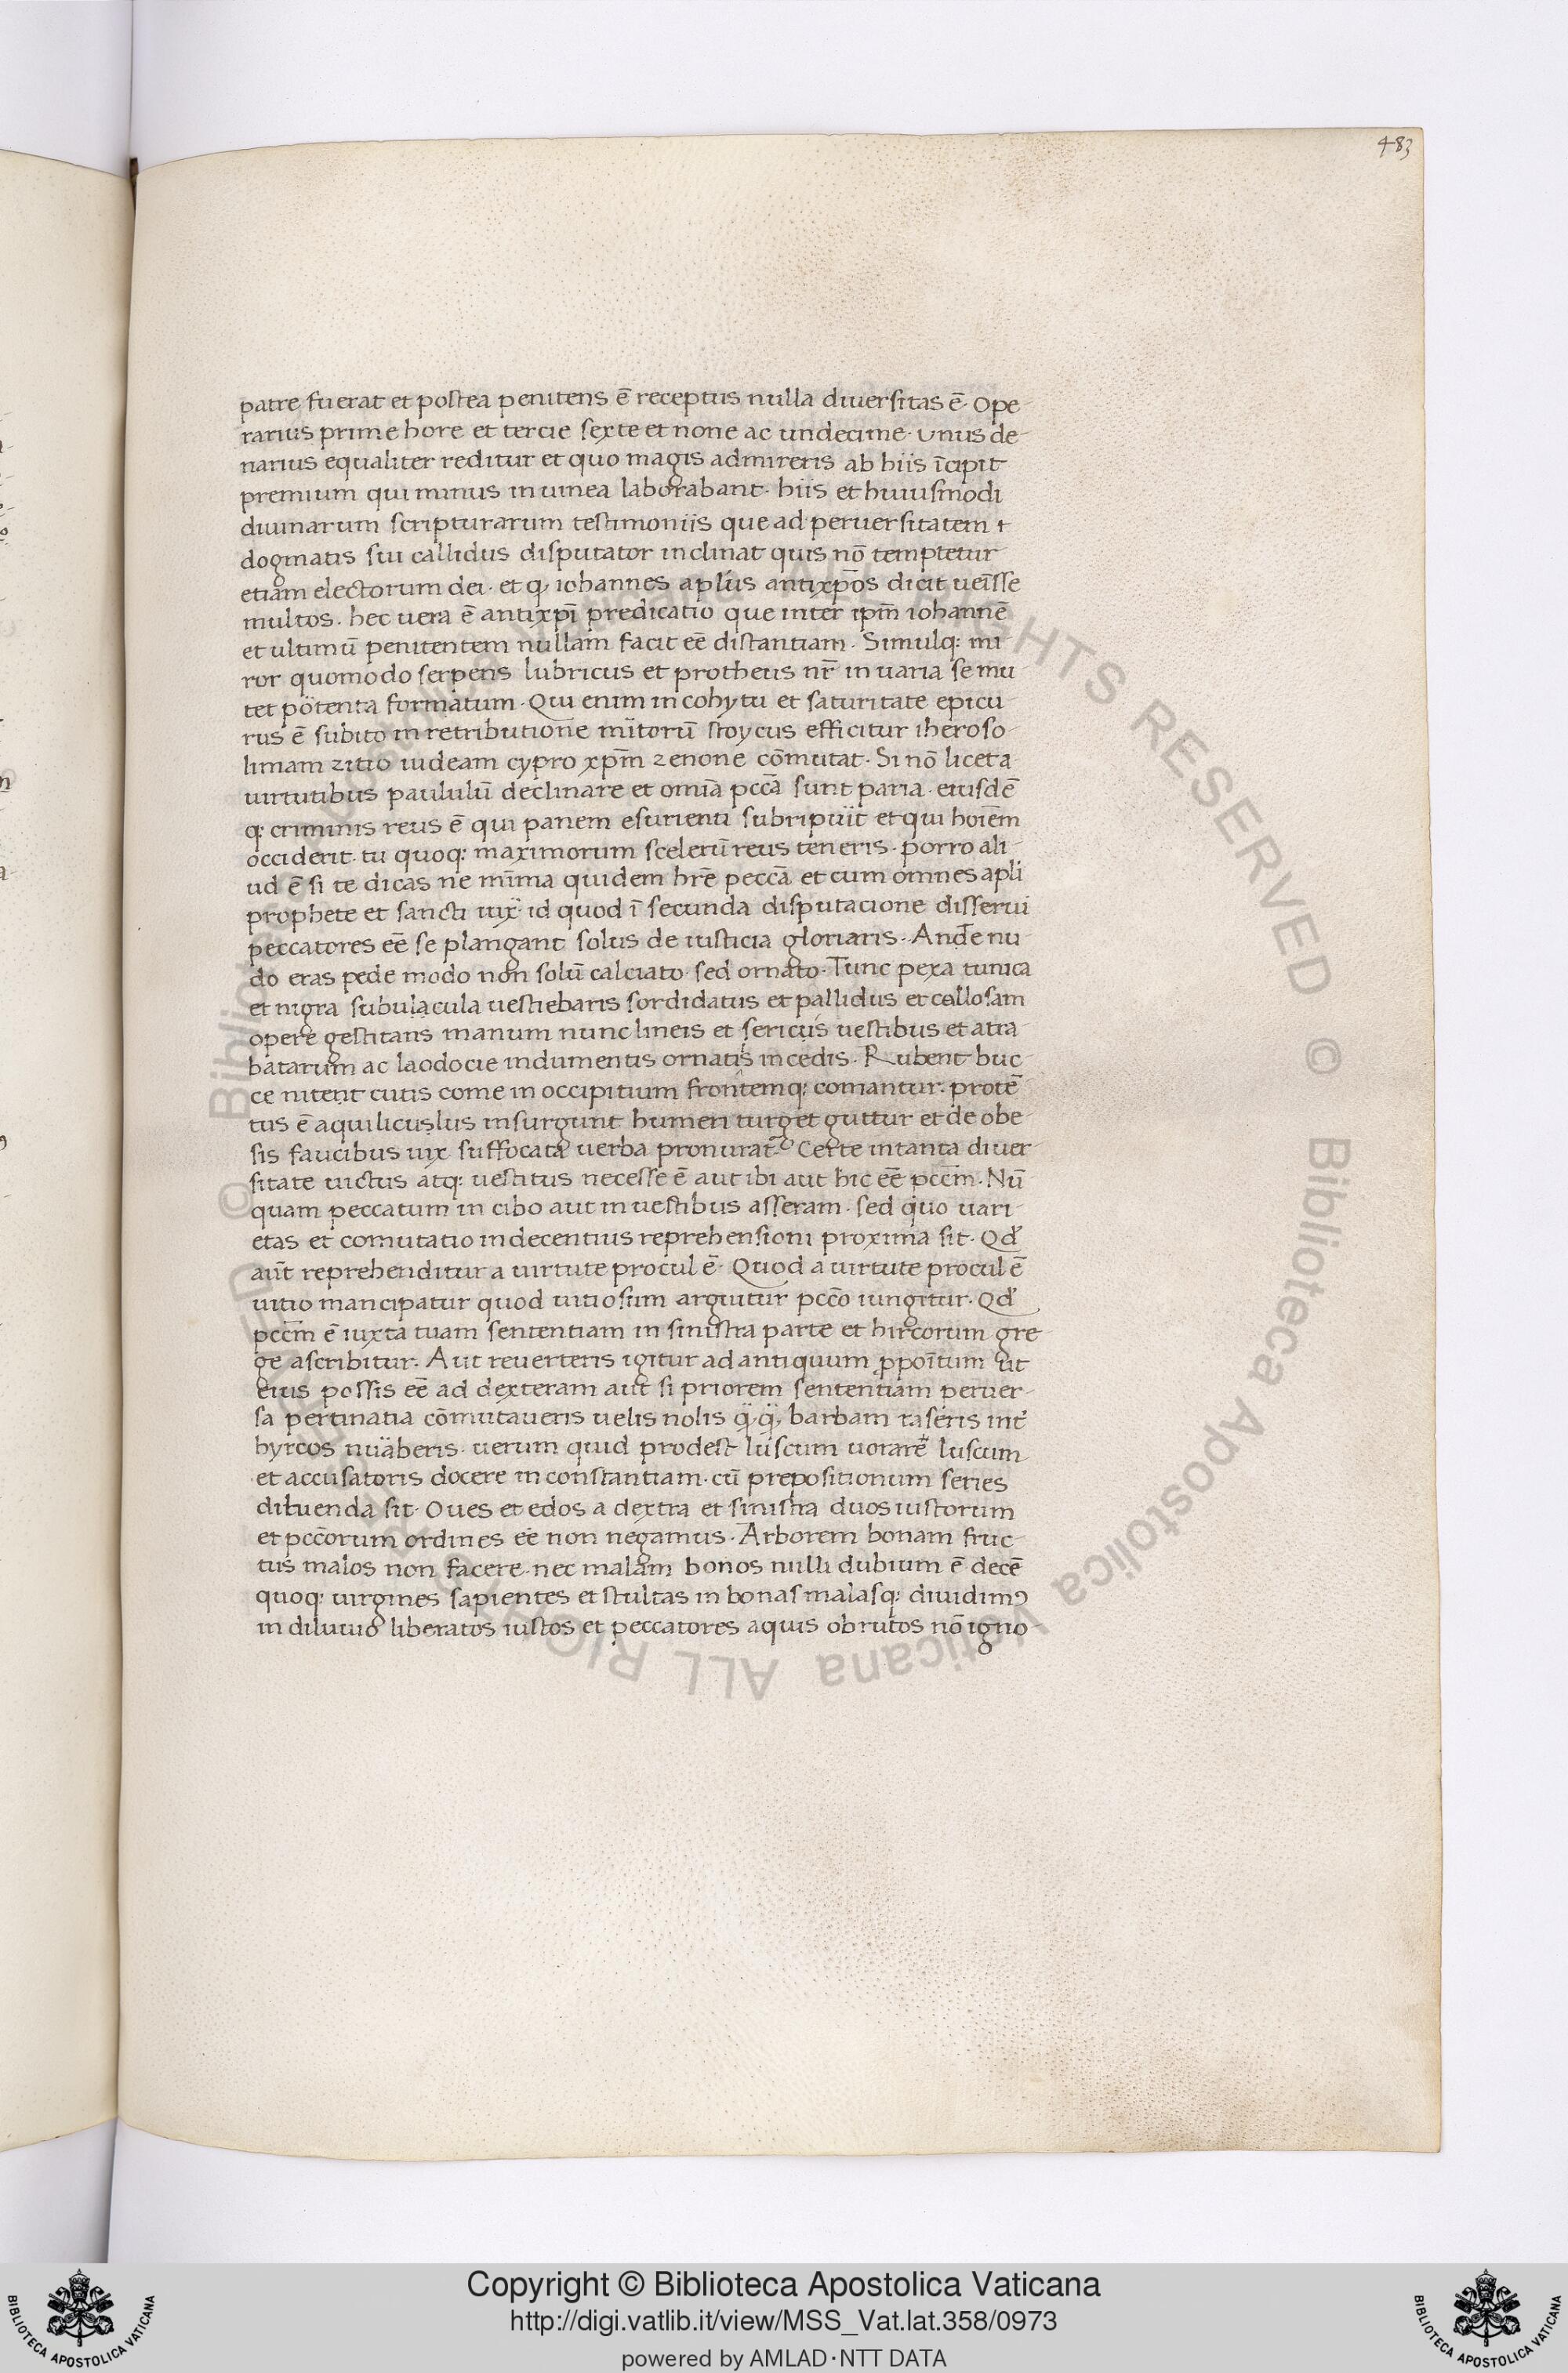 483
patre fuerat et postea penitens ē receptus nulla diuersitas ē. Ope
rarius prime hore et tercie sexte et none ac undecime. Unus de
narius equaliter reditur et quo magis admireris ab hiis īcipit
premium qui minus in uinea laborabant. hiis et huiusmodi
diuinarum scripturarum testimoniis que ad peruersitatem
dogmatis sui callidus disputator inclinat quis nō temptetur
etiam electorum dei. et q iohannes aplūs antixp̄os dicit ueīsse
multos. hec uera ē antixp̄i predicatio que inter ip̄m iohannē
et ultimū penitentem nullam facit eē distantiam. Simulq: mi
ror quomodo serpens lubricus et protheus nr̄ in uaria se mu
tet potenta formatum. Qui enim in cohytu et saturitate epicu
rus ē subito in retributione mītorū stoycus efficitur iheroso
limam zitio iudeam cypro xp̄m zenone cōmutat. Si nō licet a
uirtutibus paululū declinare et omīa pccā sunt paria. eiusdē
q: criminis reus ē qui panem esurienti subripuit et qui hoīem
occiderit. tu quoq: maximorum scelerū reus teneris. porro ali
ud ē si te dicas ne mīma quidem hr̄e peccā et cum omnes apli
prophete et sancti iux id quod ī secunda disputacione disserui
peccatores eē se plangant solus de iusticia gloriaris. Ande nu
do eras pede modo non solū calciato sed ornato. Tunc pexa tunica
et nigra subulacula uestiebaris sordidatus et pallidus et callosam
opere gestitans manum nunc lineis et sericis uestibus et atra
batarum ac laodocie indumentis ornatis incedis. Rubent buc
ce nitent cutis come in occipitium frontemq: comantur. protē
tus ē aquilicuslus insurgunt humeri turget guttur et de obe
sis faucibus uix suffocata uerba pronurat. Certe in tanta diuer
sitate uictus atq: uestitus necesse ē aut ibi aut hic eē pccm̄. Nū
quam peccatum in cibo aut in uestibus asseram. sed quo uari
etas et comutatio indecentius reprehensioni proxima sit. Qd
aūt reprehenditur a uirtute procul ē. Quod a uirtute procul ē
uitio mancipatur quod uitiosum arguitur pccō iungitur. Qd
pccm̄ ē iuxta tuam sententiam in sinistra parte et hircorum gre
ge ascribitur. Aut reuerteris igitur ad antiquum ppoītum ut
eius possis eē ad dexteram aut si priorem sententiam peruer
sa pertinatia cōmutaueris uelis nolis qq barbam raseris int̄
hyrcos nuaberis. uerum quid prodest luscum uorare luscum
et accusatoris docere inconstantiam. cū prepositionum series
diluenda sit. Oues et edos a dextra et sinistra duos iustorum
et pccōrum ordines eē non negamus. Arborem bonam fruc
tus malos non facere. nec malam bonos nulli dubium ē decē
quoq: uirgines sapientes et stultas in bonas malasq: diuidimꝰ
in diluuio liberatos iustos et peccatores aquis obrutos nō igno
Copyright © Biblioteca Apostolica Vaticana
http://digi.vatlib.it/view/MSS_Vat.lat.358/0973
powered by AMLAD·NTT DATA